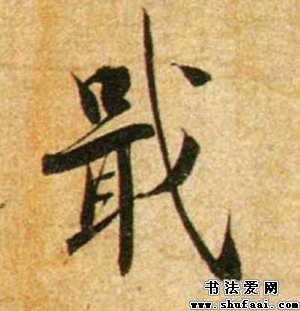 戢
书法爱网
www.shufaai.com